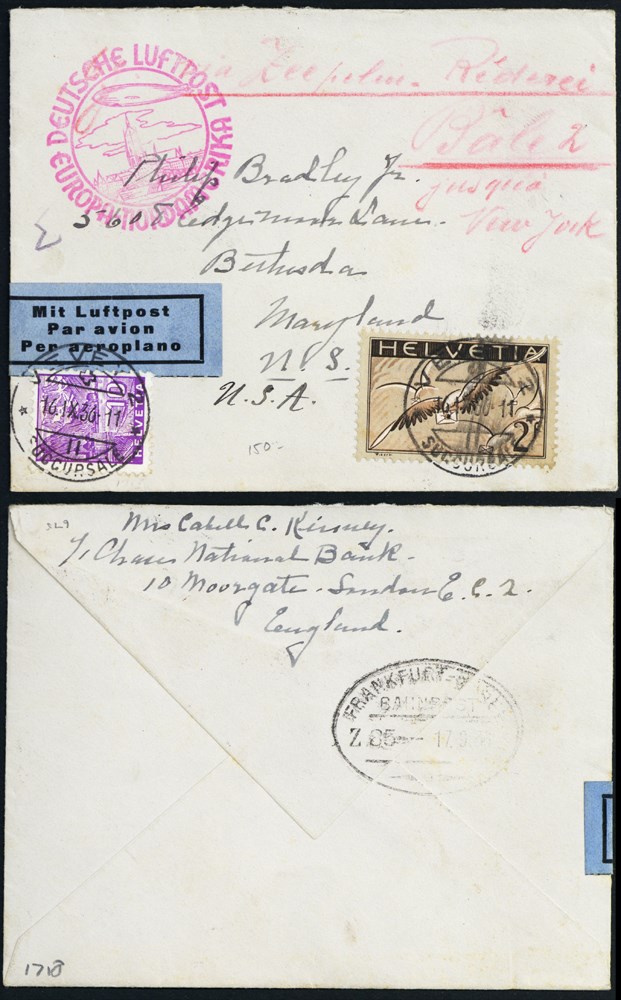 DEUTSCHE LUFTPOST
EUROPA-NORDAMERIKA
via Zeppelin-Réderei
Bâle 2
jusqu'à
New York
Philip Bradley Jr.
Lane
Bethesda
Maryland
U.S.
U.S.A.
Mit Luftpost
Par avion
Per aeroplano
VEVEY 2
16.IX.36-11
SUCCURSALE
10
HELVETIA
HELVETIA
2F
VEVEY 2
16.IX.36-11
SUCCURSALE
150-
329
Mrs Cabell C. Kinney.
c/o Chase National Bank-
10 Moorgate-London E.C.2.
England.
FRANKFURT-BASEL
BAHNPOST
Z.85 17.9.36
1718